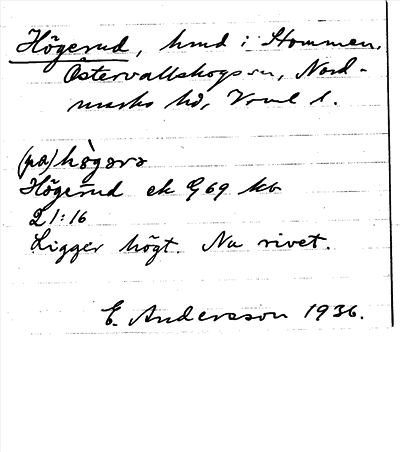 Högerud, hmd i Hommen,
Östervallskogs sn, Nord-
marks hd, Vrml l.
(på) högərə
Högerud ek G69 kb
21:16
Ligger högt. Nu rivet.
E. Andersson 1936.